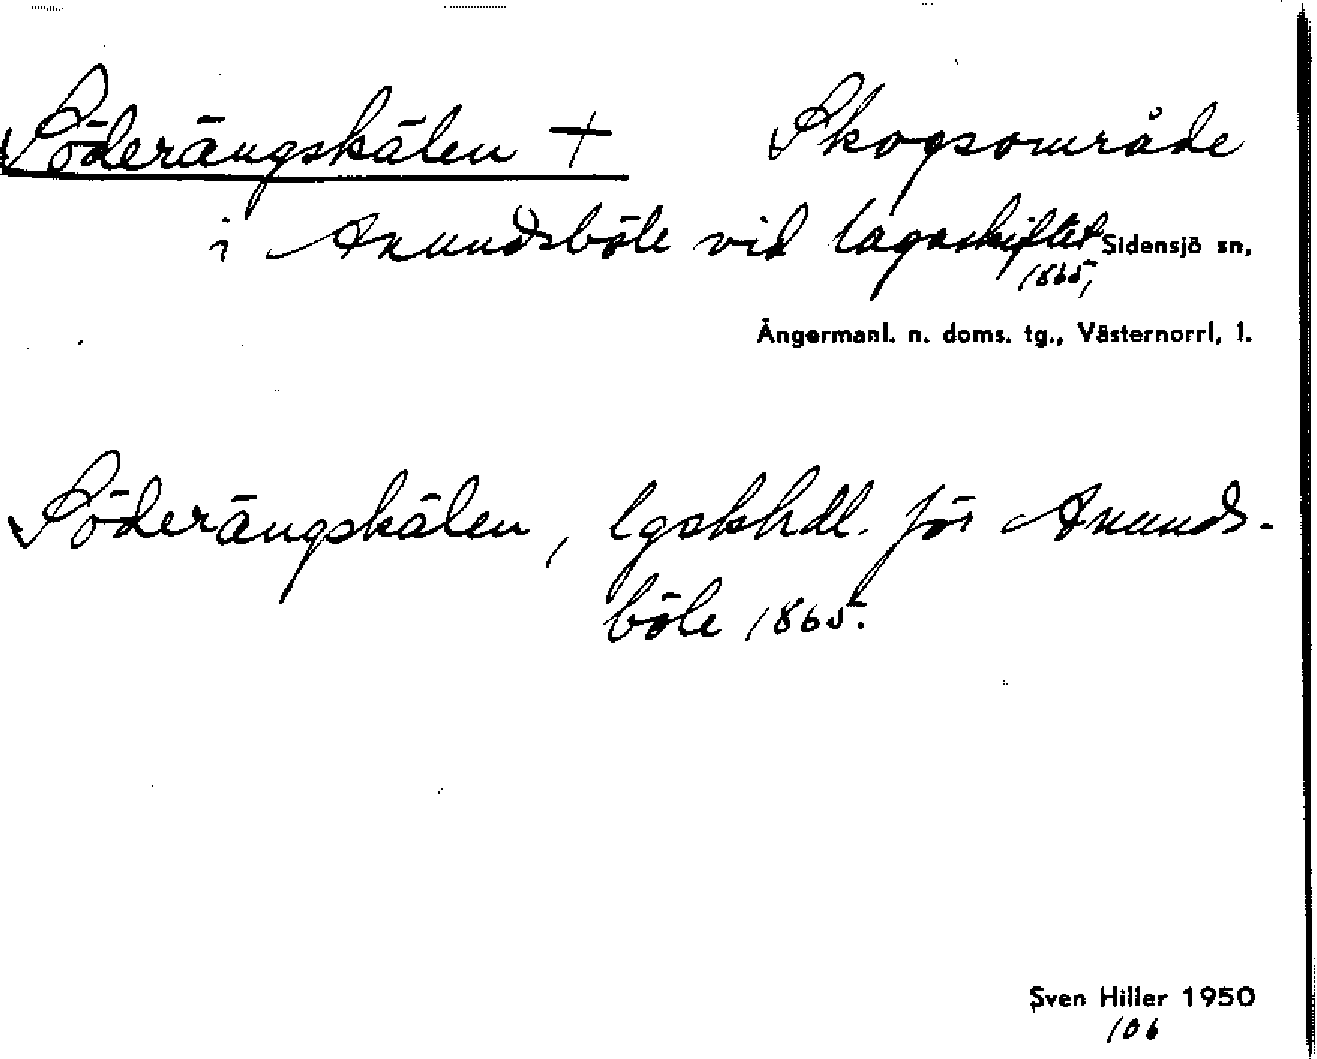 Söderängskälen + Skogsområde
i Anundsböle vid lagaskiftet Sidensjö sn,
1865,
Ångermanl. n. doms. tg., Västernorrl, l.
Söderängskälen, lgskhdl. för Anunds-
böle 1865.
Sven Hiller 1950
106